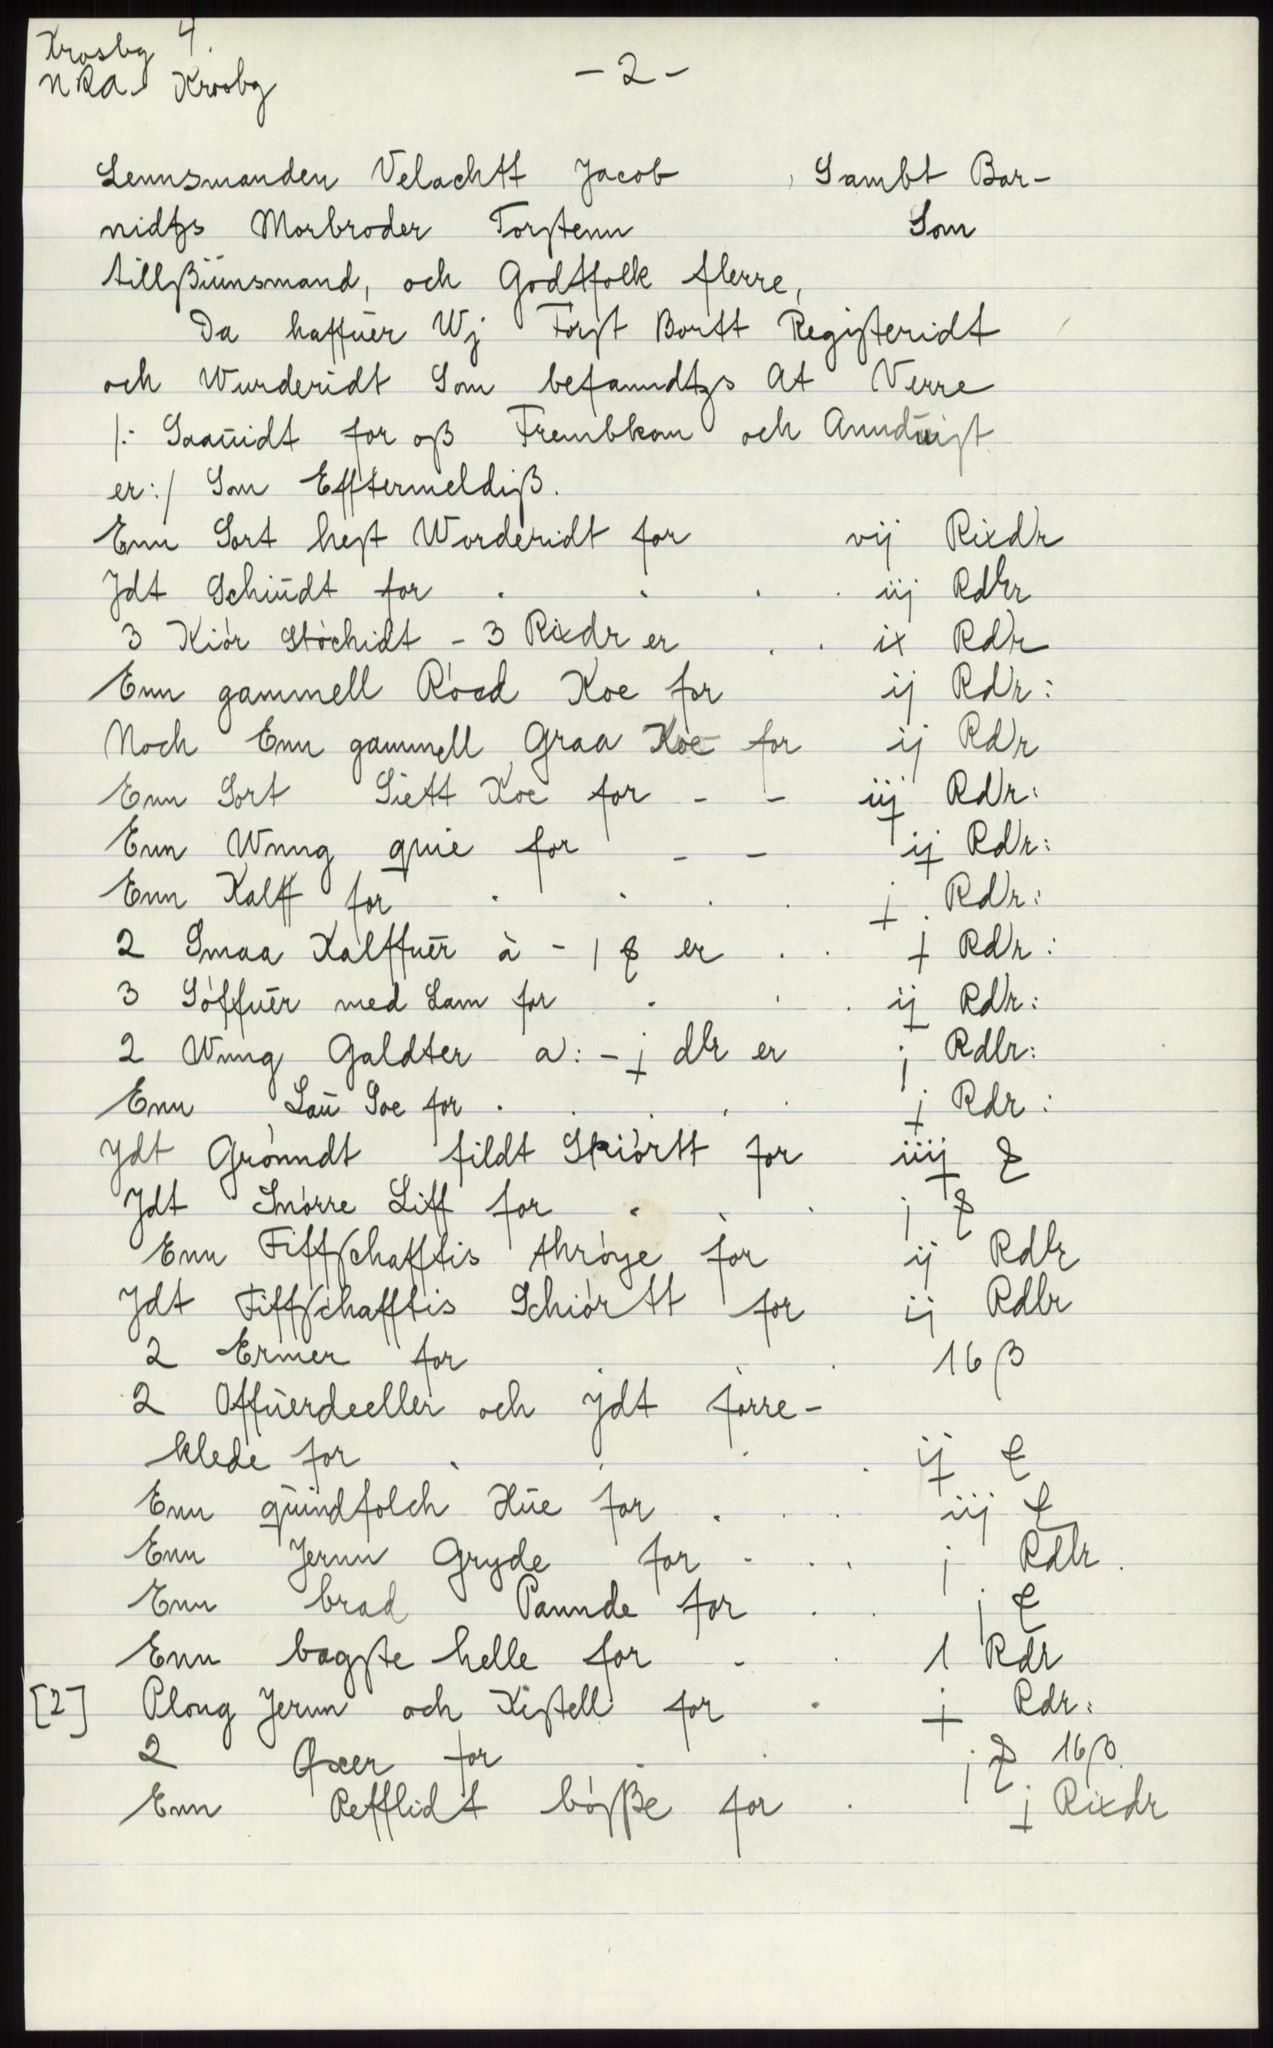 Krosby 4.
NRA. Krosby
- 2 -
Lennsmanden Velachtt Jacob , Sambt Bar-
nidtzs Morbroder Torstenn Som
tillßiünsmand, och Godtfolk flerre,
Da haffuer Wj Først Bortt Registeridt
och Wurderidt Som befanndtzs At Verre
/:- Saauidt for oß Frembkom och Anndüist
er:/ Som Efftermeldiß.
Enn Sort hest Wurderidt for vij Rixdr
Jdt Schiüdt for . . . . iij Rdlr
3 Kiór Støchidt - 3 Rixdr er . . ix Rdr
Enn gammell Róed Koe for ij Rdr:
Noch Enn gammell Graa Koe for ij Rdr
Enn Sort Siett Koe for - - iij Rdr:
Enn Wnng quie for - - ij Rdr:
Enn Kalff for . . . . j Rdr:
2 Smaa Kalffuer à - 1 ʒ er . . j Rdr:
3 Sóffuer med Lam for . . . ij Rdr:
2 Wnng Galdter a: - j dlr er j Rdlr:
Enn Lau Soe for . . . . . j Rdr:
Jdt Grónndt fildt Skiórtt for iiij ʒ
Jdt Snórre Liff for . . . j ʒ
Enn Fiffschafftis thróye for ij Rdlr
Jdt Fiffschafftis Schiórtt for ij Rdlr
2 Ermer for . . . 16 β
2 Offuerdeeller och Jdt forre-
klede for . . . . ij ʒ
Enn quindfolch Hüe for . . . iij ʒ
Enn Jernn Gryde for . . . j Rdlr.
Enn brad Pannde for . . j ʒ
Enn bagste helle for . . 1 Rdr
[2] Ploug Jernn och Kistell for . j Rdr:
2 Øxer for . . j ʒ 16 β.
Enn Refflidt bóßße for . j Rixdr